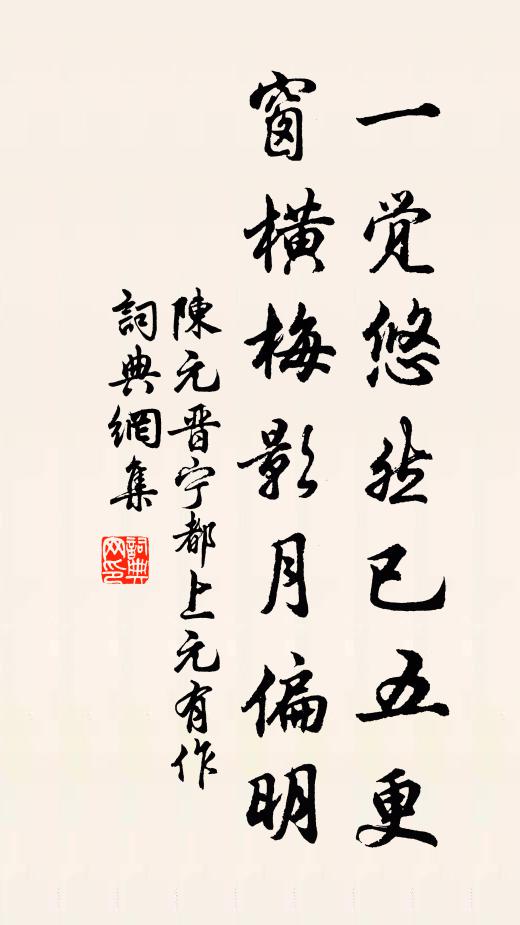 一觉悠然已五更
窗橫梅影月偏明
陳元晋宁都上元有作
詞典網集
詞典网印